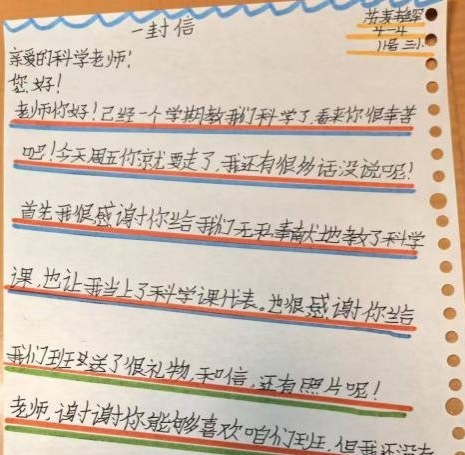 一封信
4-4
亲爱的科学老师!
您好!
老师你好!已经一个学期教我们科学了,看来你很幸苦
吧!今天周五你就要走了,我还有很多话没说呢!
首先我很感谢你给我们无私奉献地教了科学
课,也让我当上了科学课代表。也很感谢你给
我们班送了很礼物,和信,还有照片呢!
老师,谢谢你能够喜欢咱们班,但我还没有